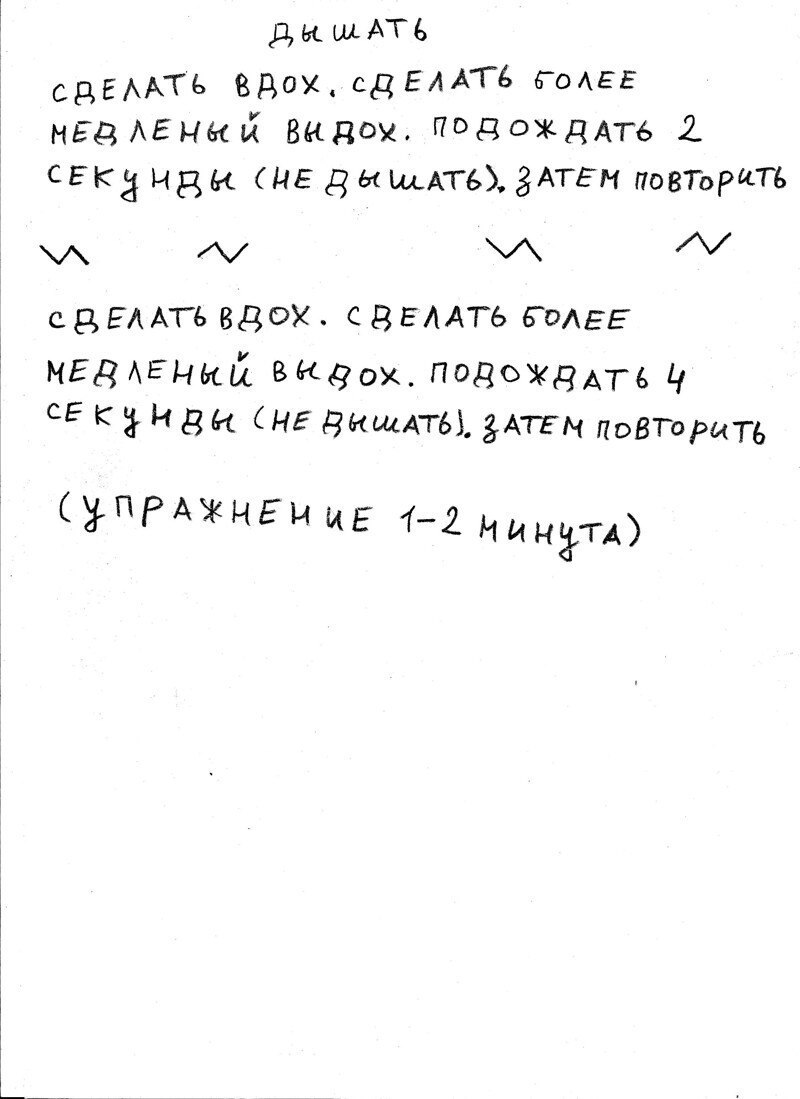 ДЫШАТЬ
СДЕЛАТЬ ВДОХ. СДЕЛАТЬ БОЛЕЕ
МЕДЛЕНЫЙ ВЫДОХ. ПОДОЖДАТЬ 2
СЕКУНДЫ (НЕ ДЫШАТЬ). ЗАТЕМ ПОВТОРИТЬ
СДЕЛАТЬ ВДОХ. СДЕЛАТЬ БОЛЕЕ
МЕДЛЕНЫЙ ВЫДОХ. ПОДОЖДАТЬ 4
СЕКУНДЫ (НЕ ДЫШАТЬ). ЗАТЕМ ПОВТОРИТЬ
(УПРАЖНЕНИЕ 1-2 МИНУТА)